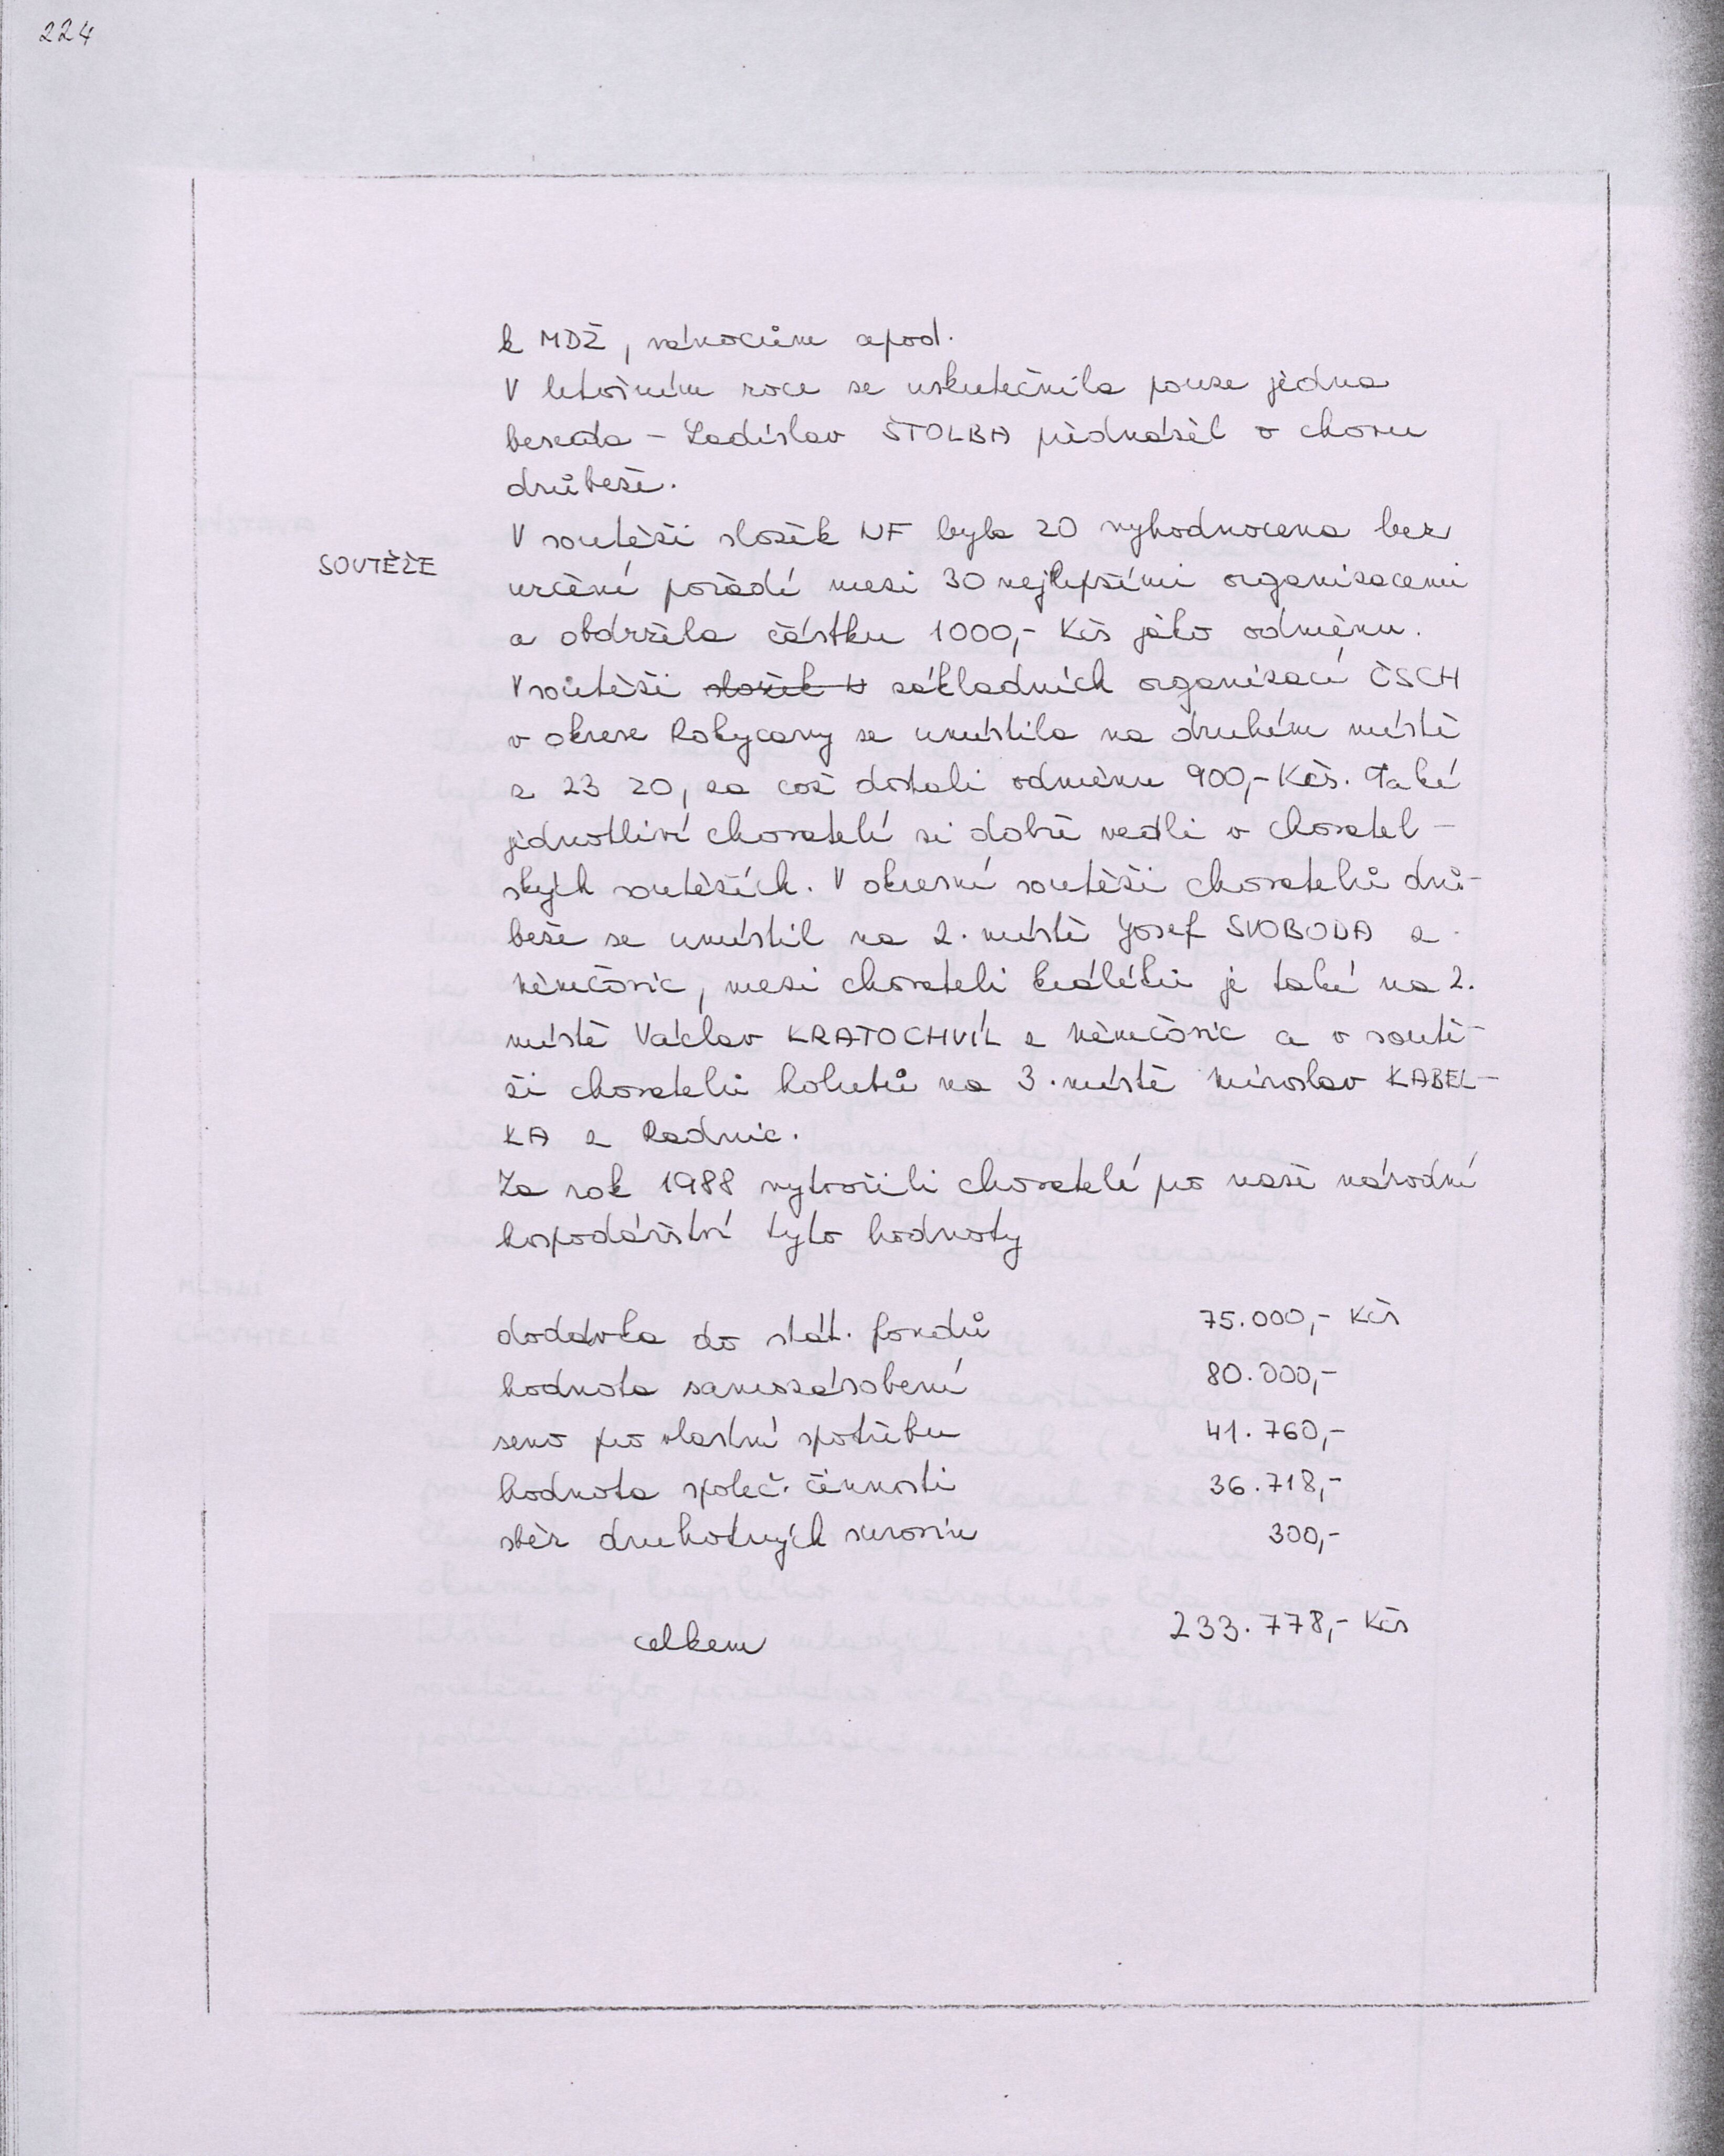 224
k MDŽ, vánocům apod.
V letošním roce se uskutečnila pouze jedna
beseda - Ladislav ŠTOLBA přednášel o chovu
drůbeže.
SOUTĚŽE
V soutěži složek NF byla ZO vyhodnocena bez
určení pořadí mezi 30 nejlepšími organizacemi
a obdržela částku 1000,- Kčs jako odměnu.
V soutěži složek N základních organizací ČSCH
v okrese Rokycany se umístila na druhém místě
z 23 ZO, za což dostali odměnu 900,- Kčs. Také
jednotliví chovatelé si dobře vedli v chovatel-
ských soutěžích. V okresní soutěži chovatelů drů-
beže se umístil na 2. místě Josef SVOBODA z
Němčovic, mezi chovateli králíků je také na 2.
místě Václav KRATOCHVÍL z Němčovic a v soutě-
ži chovatelů holubů na 3. místě Miroslav KABEL-
KA z Radnic.
Za rok 1988 vytvořili chovatelé pro naše národní
hospodářství tyto hodnoty
dodávka do stát. fondů 75.000,- Kčs
hodnota samozásobení 80.000,-
seno pro vlastní spotřebu 41.760,-
hodnota společ. činnosti 36.718,-
sběr druhotných surovin 300,-
celkem 233.778,- Kčs